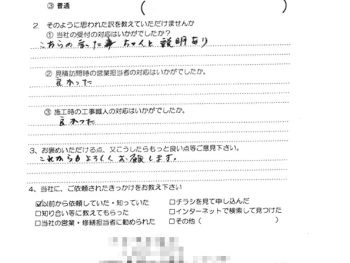 ③ 普通 (
2. そのように思われた訳を教えていただけませんか
① 当社の受付の対応はいかがでしたか?
こちらの言った事 ちゃんと説明あり
② 見積訪問時の営業担当者の対応はいかがでしたか。
良かった
③ 施工時の工事職人の対応はいかがでしたか。
良かった
3、お褒めいただける点、又こうしたらもっと良い点等ご意見下さい。
これからもよろしくお願いします。
4、当社に、ご依頼されたきっかけをお教え下さい
☑以前から依頼していた・知っていた □チラシを見て申し込んだ
□知り合い等に教えてもらった □インターネットで検索して見つけた
□当社の営業・修繕担当者に勧められた □その他 ( )